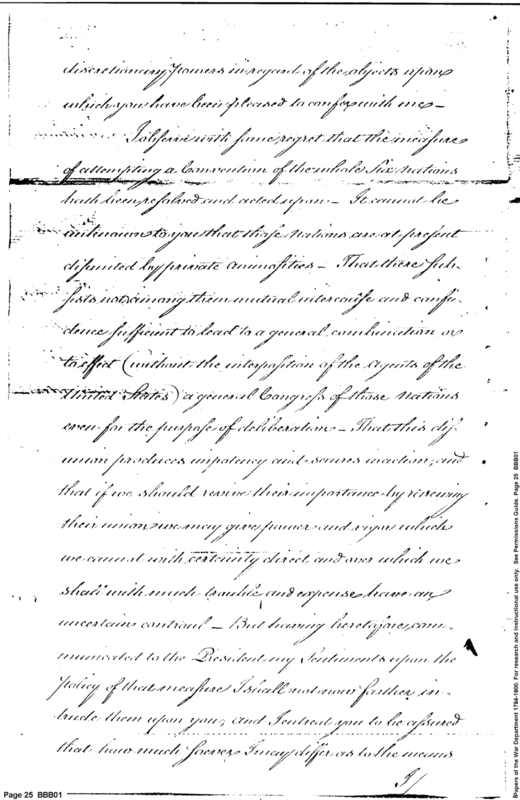 discretionary Powers in regard of the objects upon
which you have been pleased to confer with me –
I observe with some regret that the measure
of attempting a Convention of the whole Six Nations
hath been resolved and acted upon – It cannot be
unknown to you that those Nations are at present
disunited by private animosities – That there sub-
sists not among them mutual intercourse and confi-
dence sufficient to lead to a general combination or
to effect (without the interposition of the Agents of the
United States) a general Congress of those Nations
even for the purpose of deliberation – That this dis-
union produces impotency and secures inaction, and
that if we should revive their importance by renewing
their union we may give power and vigor which
we cannot with certainty direct and over which we
shall with much trouble and expense have an
uncertain controul – But having heretofore com-
municated to the President my Sentiments upon the
Policy of that measure I shall not now farther in-
trude them upon you, and I entreat you to be assured
that how much soever I may differ as to the means
I/
Page 25 BBB01
Papers of the War Department 1784-1800. For research and instructional use only. See Permissions Guide. Page 25 BBB01